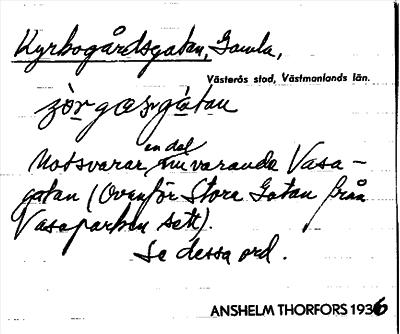 Kyrkogårdsgatan, Gamla,
Västerås stad, Västmanlands län.
Motsvarar en del nuvarande Vasa-
gatan (Ovanför Stora Gatan från
Vasaparken sett).
Se dessa ord.
ANSHELM THORFORS 1936